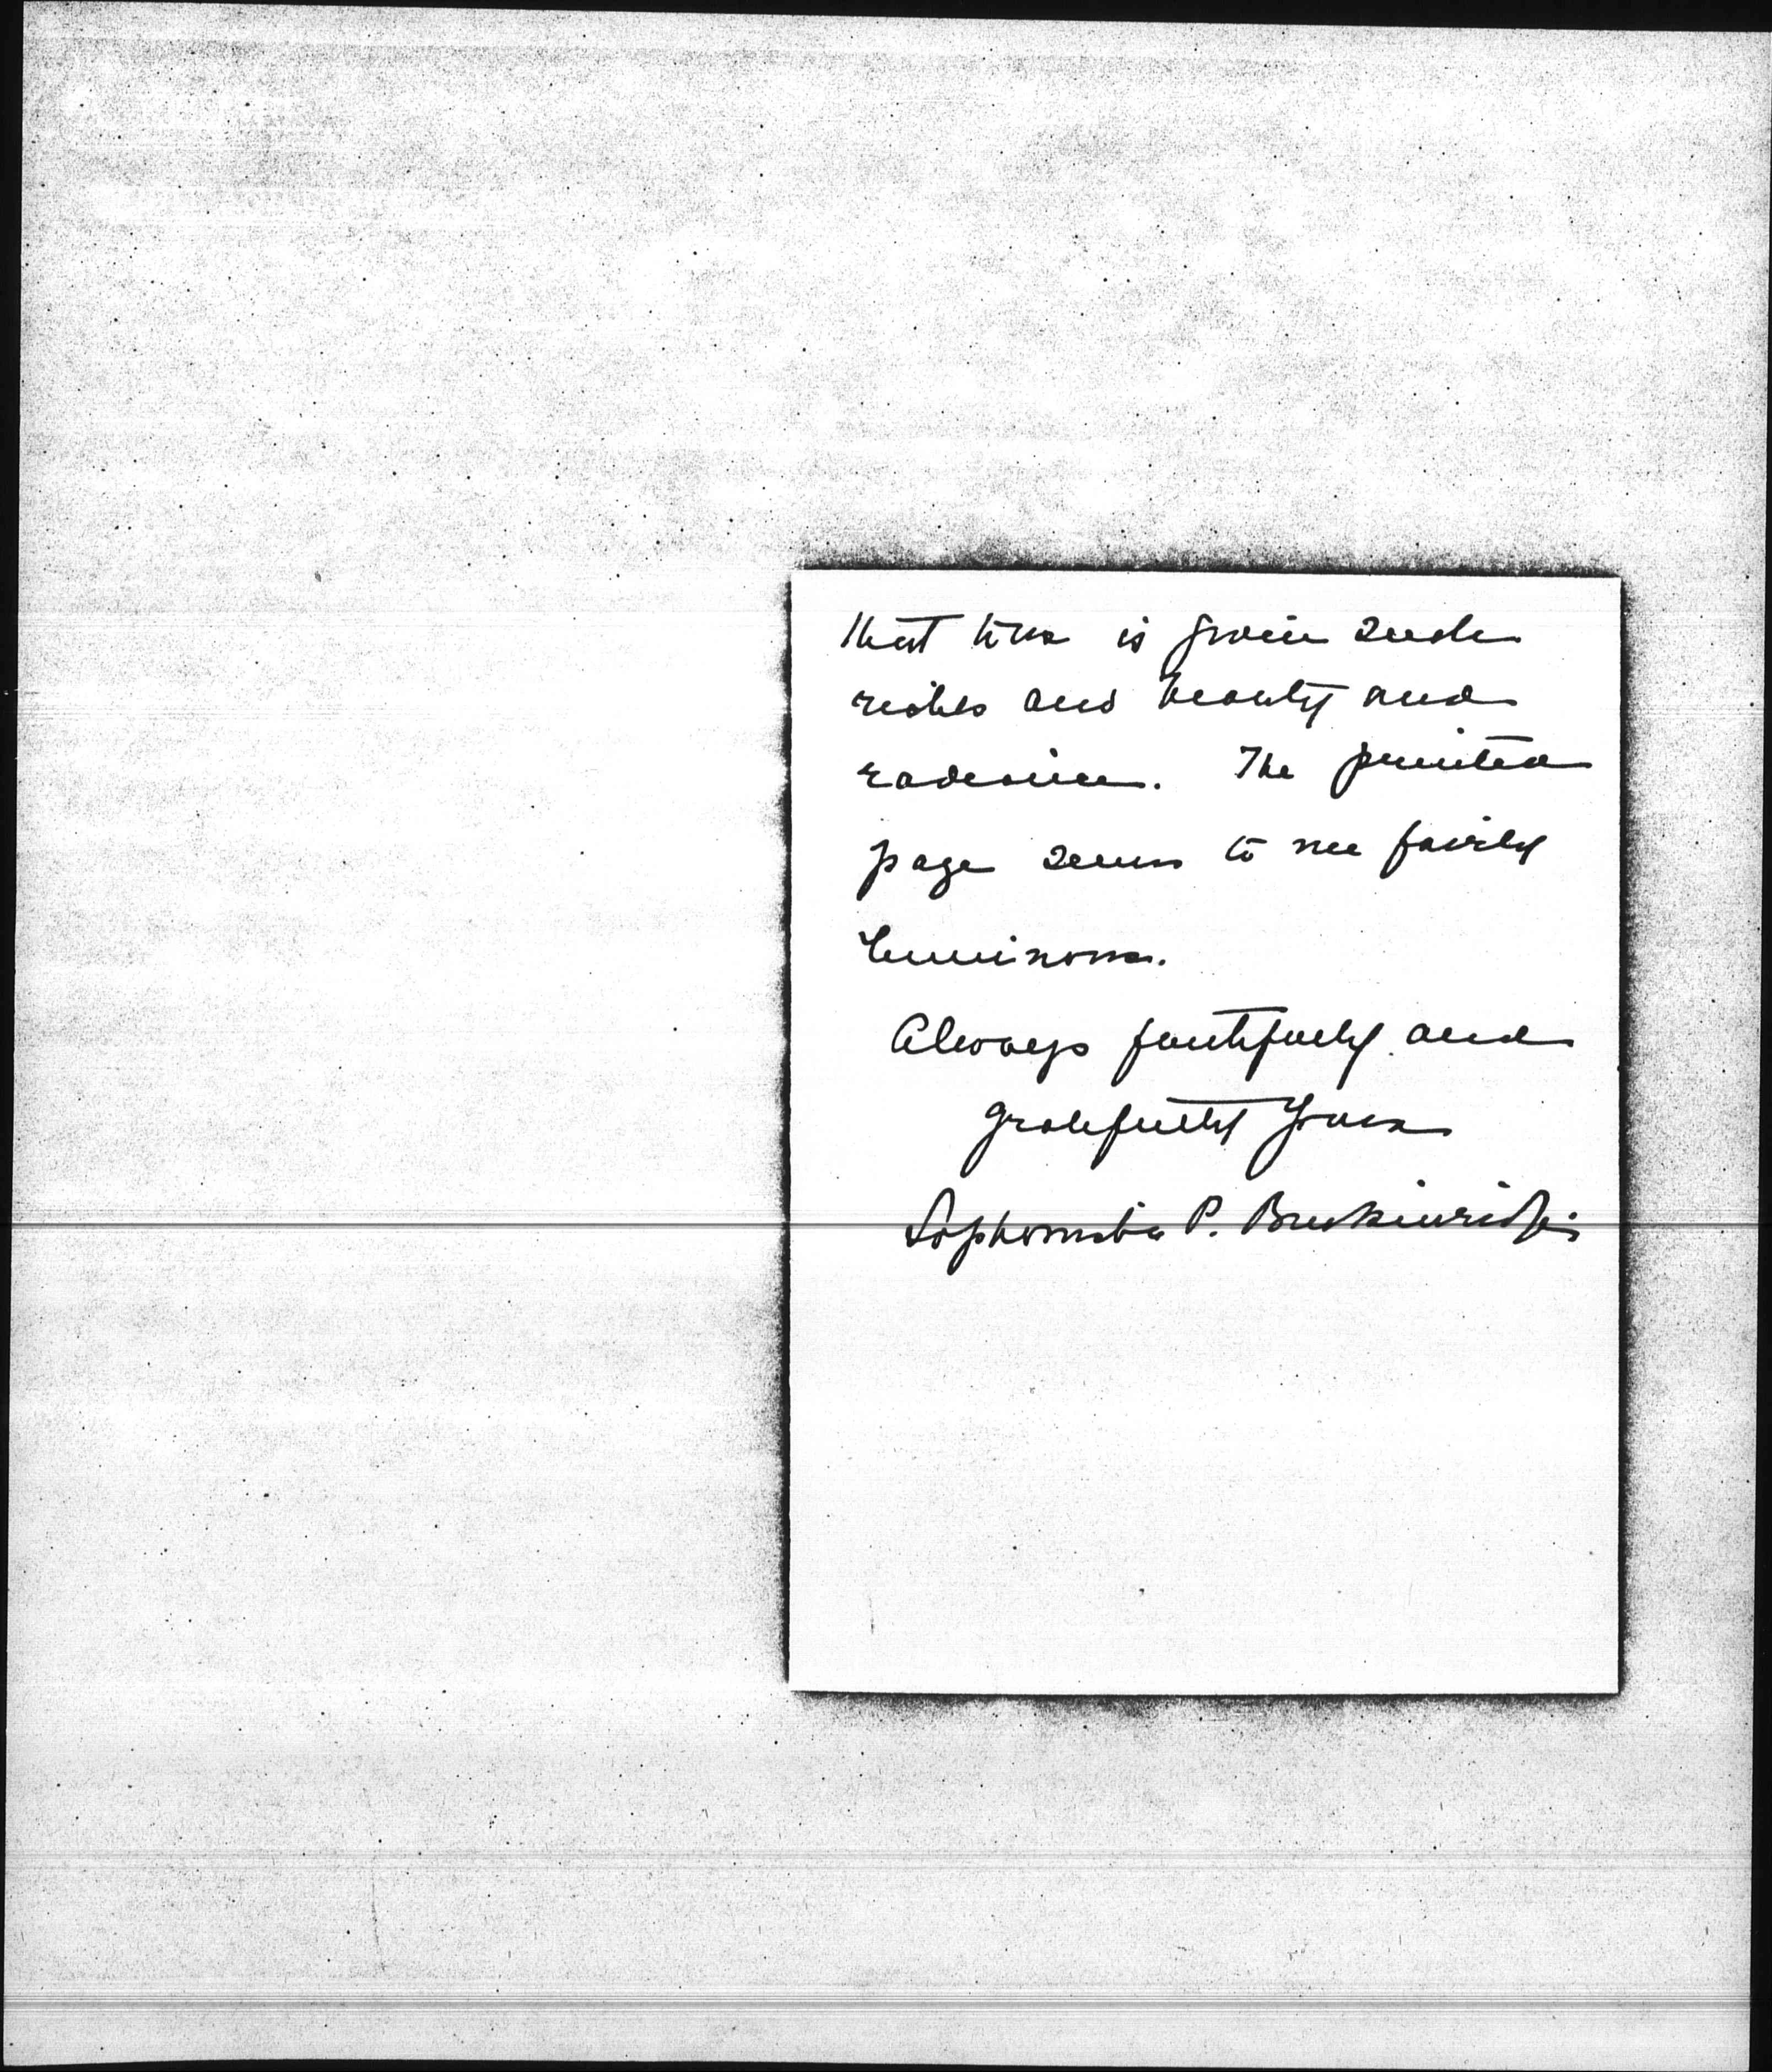 that time is given such
riches and beauty and
radiance. The printed
page seems to me fairly
luminous.
Always faithfully and
gratefully yours
Sophonisba P. Breckinridge